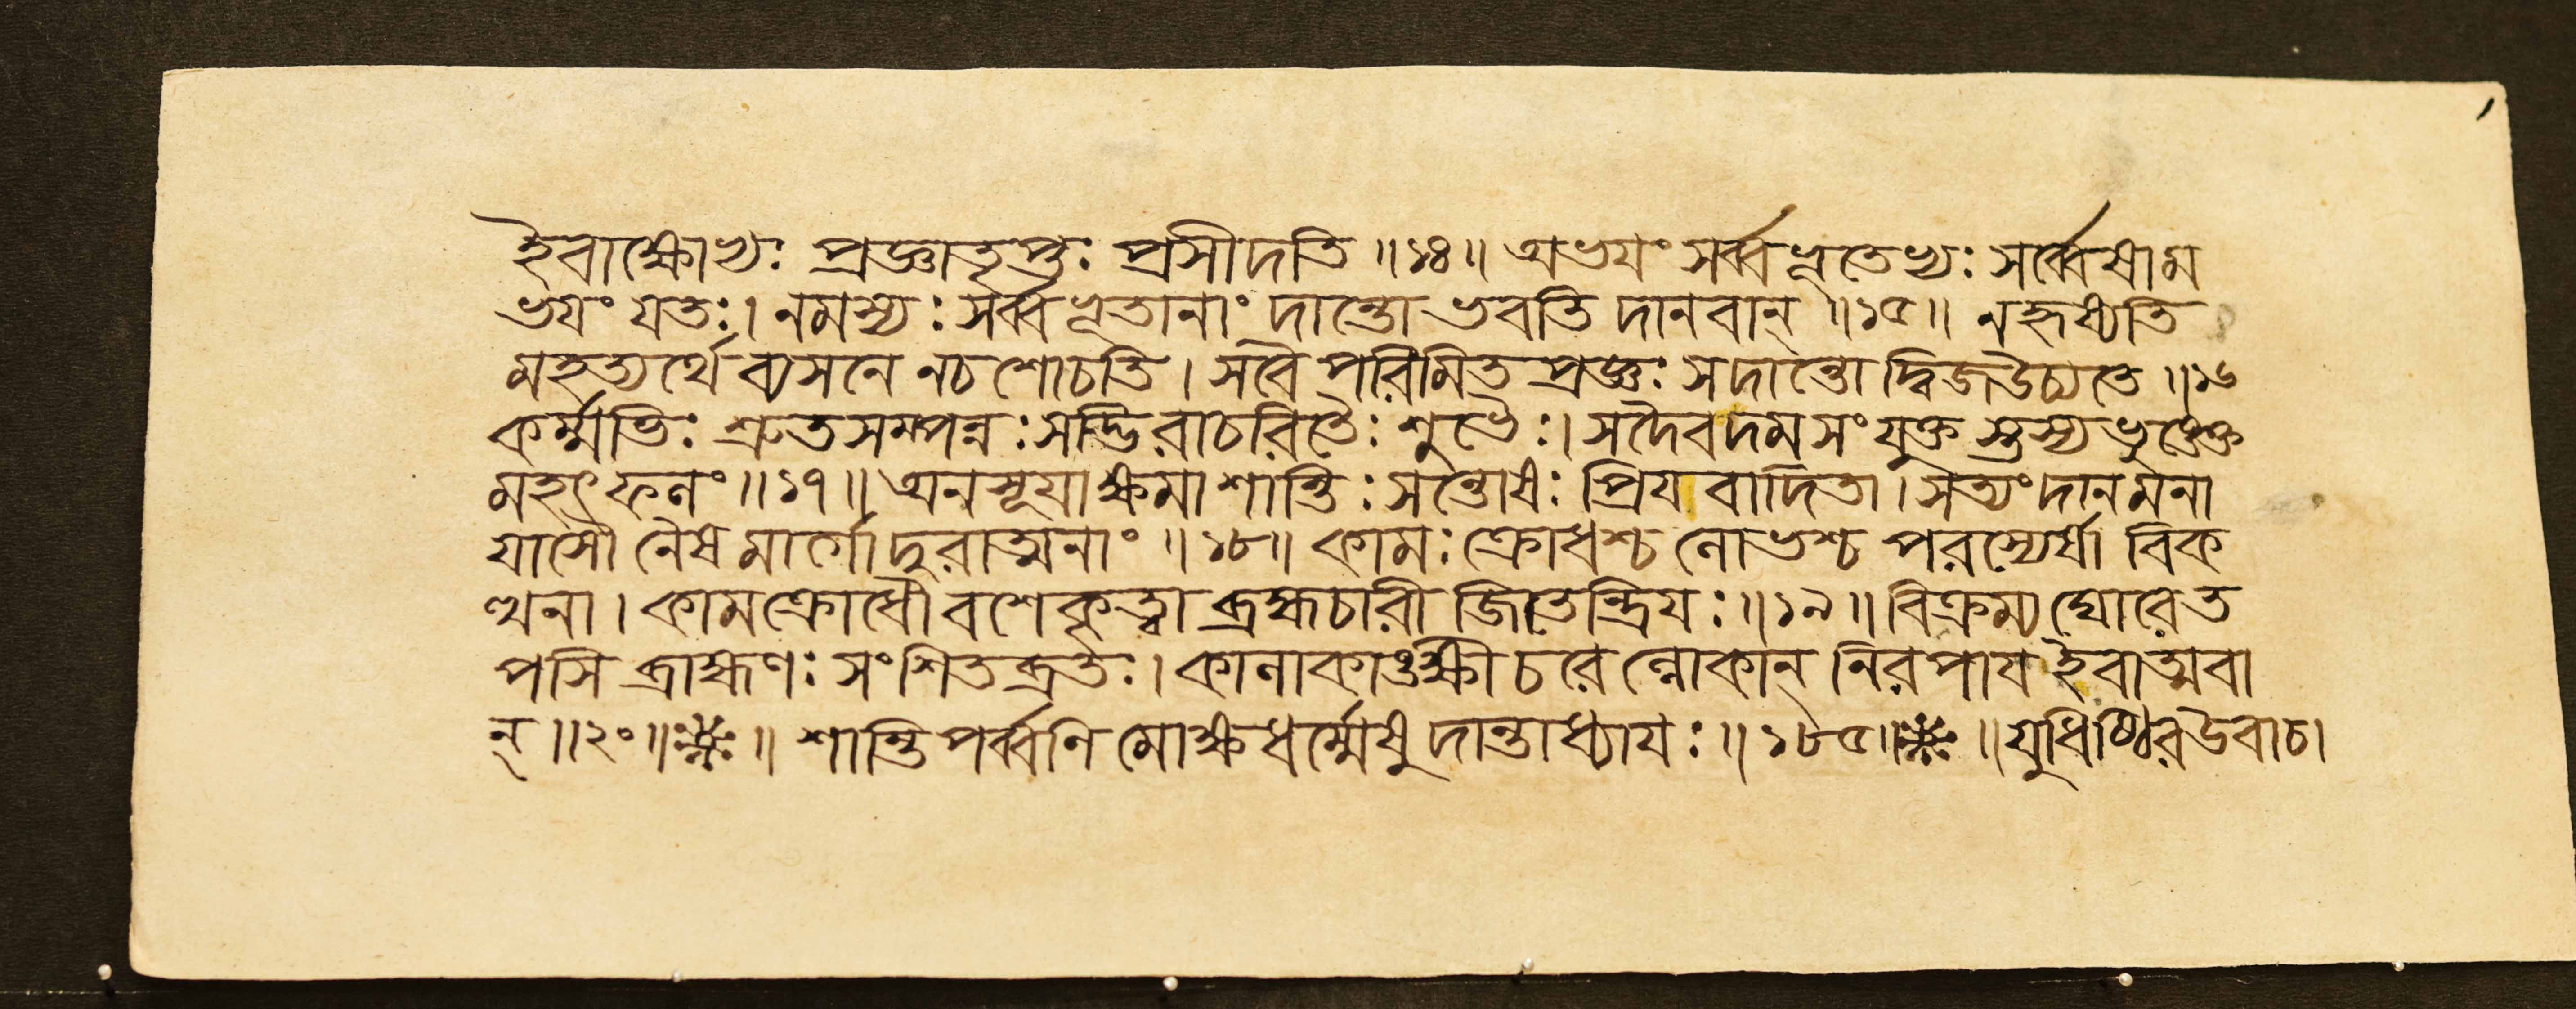 ইবাক্ষোভ্যঃ প্রজ্ঞাতৃপ্তঃ প্রসীদতি ॥১৪॥ অভয়ং সর্ব্বভূতেভ্যঃ সর্ব্বেষাম
ভয়ং যতঃ। নমস্যঃ সর্ব্বভূতানাং দান্তো ভবতি দানবান্ ॥১৫॥ নহৃষ্যতি
মহত্যর্থে ব্যসনে নচশোচতি। সবৈ পরিমিতপ্রজ্ঞঃ সদান্তো দ্বিজউচ্যতে ॥১৬
কর্ম্মভিঃ শ্রুতসম্পন্নঃ সদ্ভিরাচরিতৈঃ শুভৈঃ। সদৈবদমসংযুক্তস্তস্যভুঙ্ক্তে
মহৎফলং ॥১৭॥ অনসূয়াক্ষমাশান্তিঃ সন্তোষঃ প্রিয়বাদিতা। সত্যংদানমনা
যাসো নৈষমার্গোদুরাত্মনাং ॥১৮॥ কামঃ ক্রোধশ্চ লোভশ্চ পরস্যের্ষা বিক
ত্থনা। কামক্রোধৌ বশেকৃত্বা ব্রহ্মচারী জিতেন্দ্রিয়ঃ ॥১৯॥ বিক্রম্য ঘোরেত
পসি ব্রাহ্মণঃ সংশিতব্রতঃ। কালাকাঙ্ক্ষী চরেল্লোকান্ নিরপায় ইবাত্মবা
ন্ ॥২০॥ ॥ শান্তিপর্ব্বণি মোক্ষধর্ম্মেষু দান্তাধ্যায়ঃ ॥১৮৫॥ ॥ যুধিষ্ঠিরউবাচ।